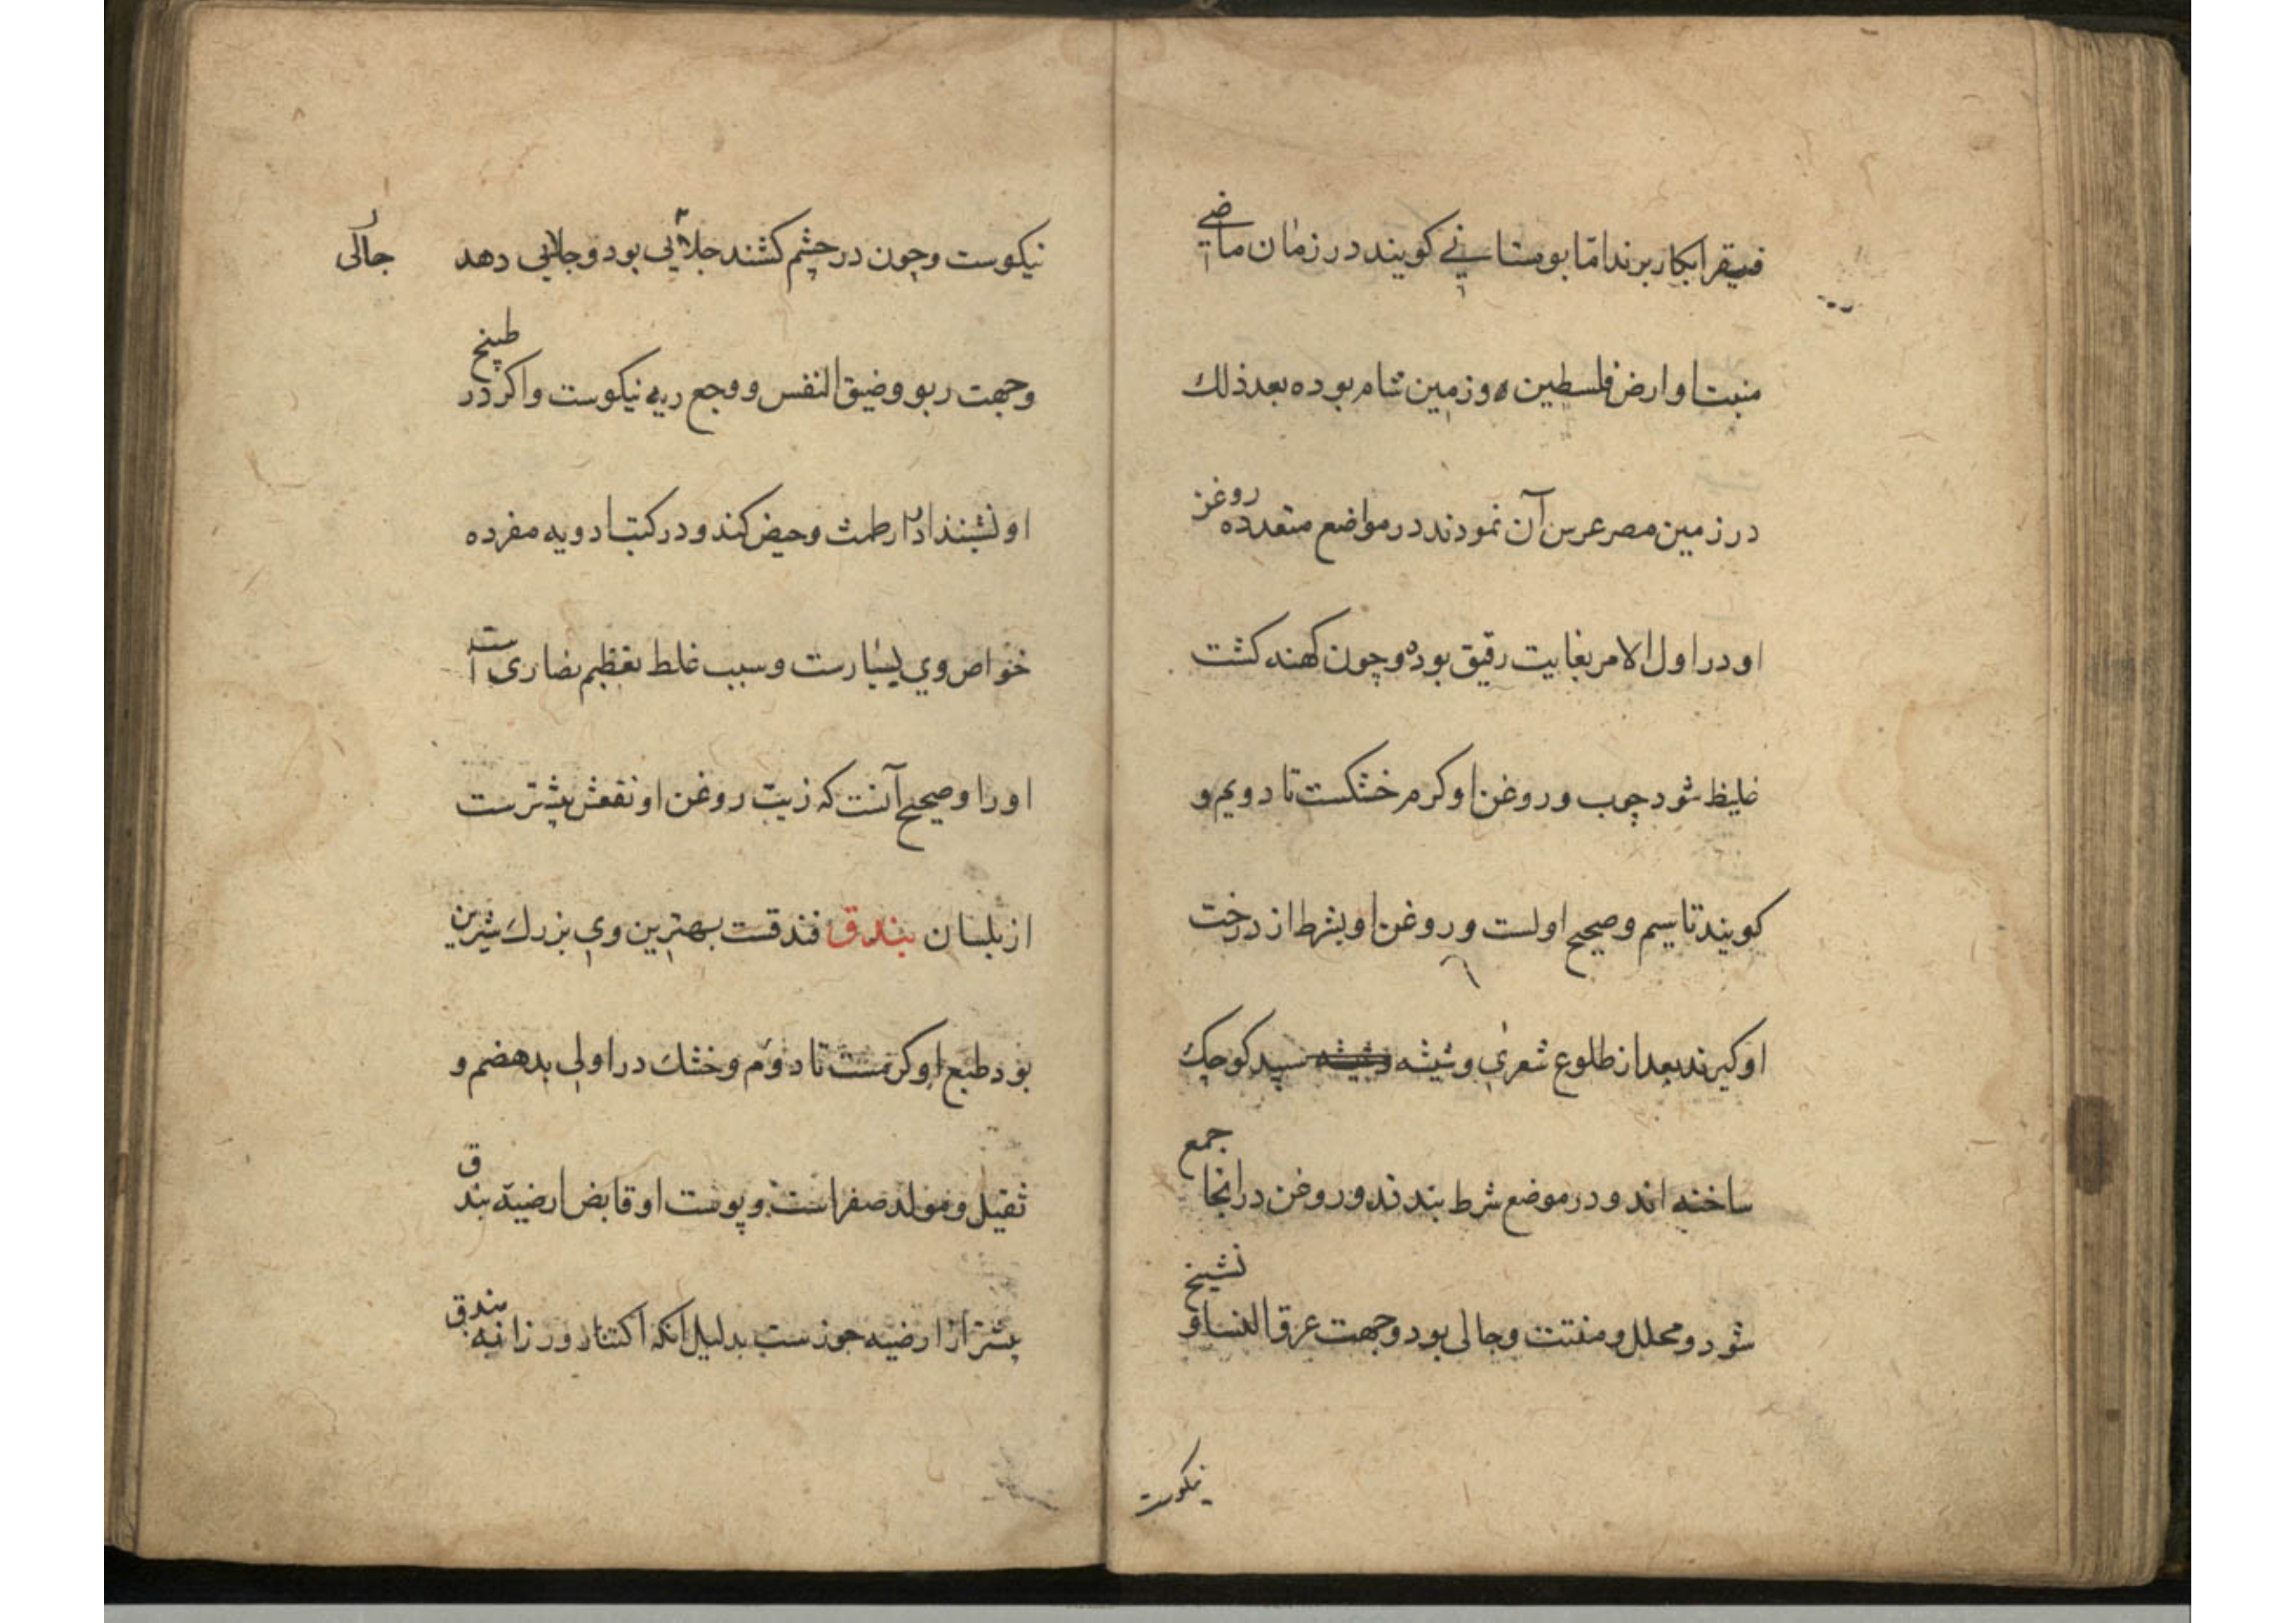 فیقرا بکار برند اما بوستانی کویند در زمان ماضی
منبت او ارض فلسطین و زمین شام بوده بعد ذلك
در زمین مصر غرس آن نمودند در مواضع متعدده روغن
او در اول الامر بغایت رقیق بوده و چون کهنه کشت
غلیظ شود چوب و روغن او کرم خشکست تا دویم و
کویند تا سیم و صحیح اولست و روغن او بشرط از درخت
او کیرند بعد از طلوع شعری و شیشه سپید کوچك
ساخته اند و در موضع شرط بندند و روغن در انجا جمع
شود و محلل و مفتت و جالی بود و جهت عرق النسا و تشنج
نیکوست
نیکوست و چون در چشم کشند جلائی بود و جلایی دهد
جالی
وجهت ربو و ضیق النفس و وجع ریه نیکوست و اکر در طبیخ
او نشینند ادرار طمث و حیض کند و در کتب ادویه مفرده
خواص وی بسیارست و سبب غلط تعظیم نصاری است
او را و صحیح آنست که زیت روغن او نفعش بیشترست
از بلسان بندق فندقست بهترین وی بزرك شیرین
بود طبع او کرمست تا دوم و خشك در اولی بد هضم و
ثقیل و مولد صفراست و پوست او قابض ارضیه بندق
بیشتر از ارضیه جوزست بدلیل انکه اکتناز و رزانیه بندق